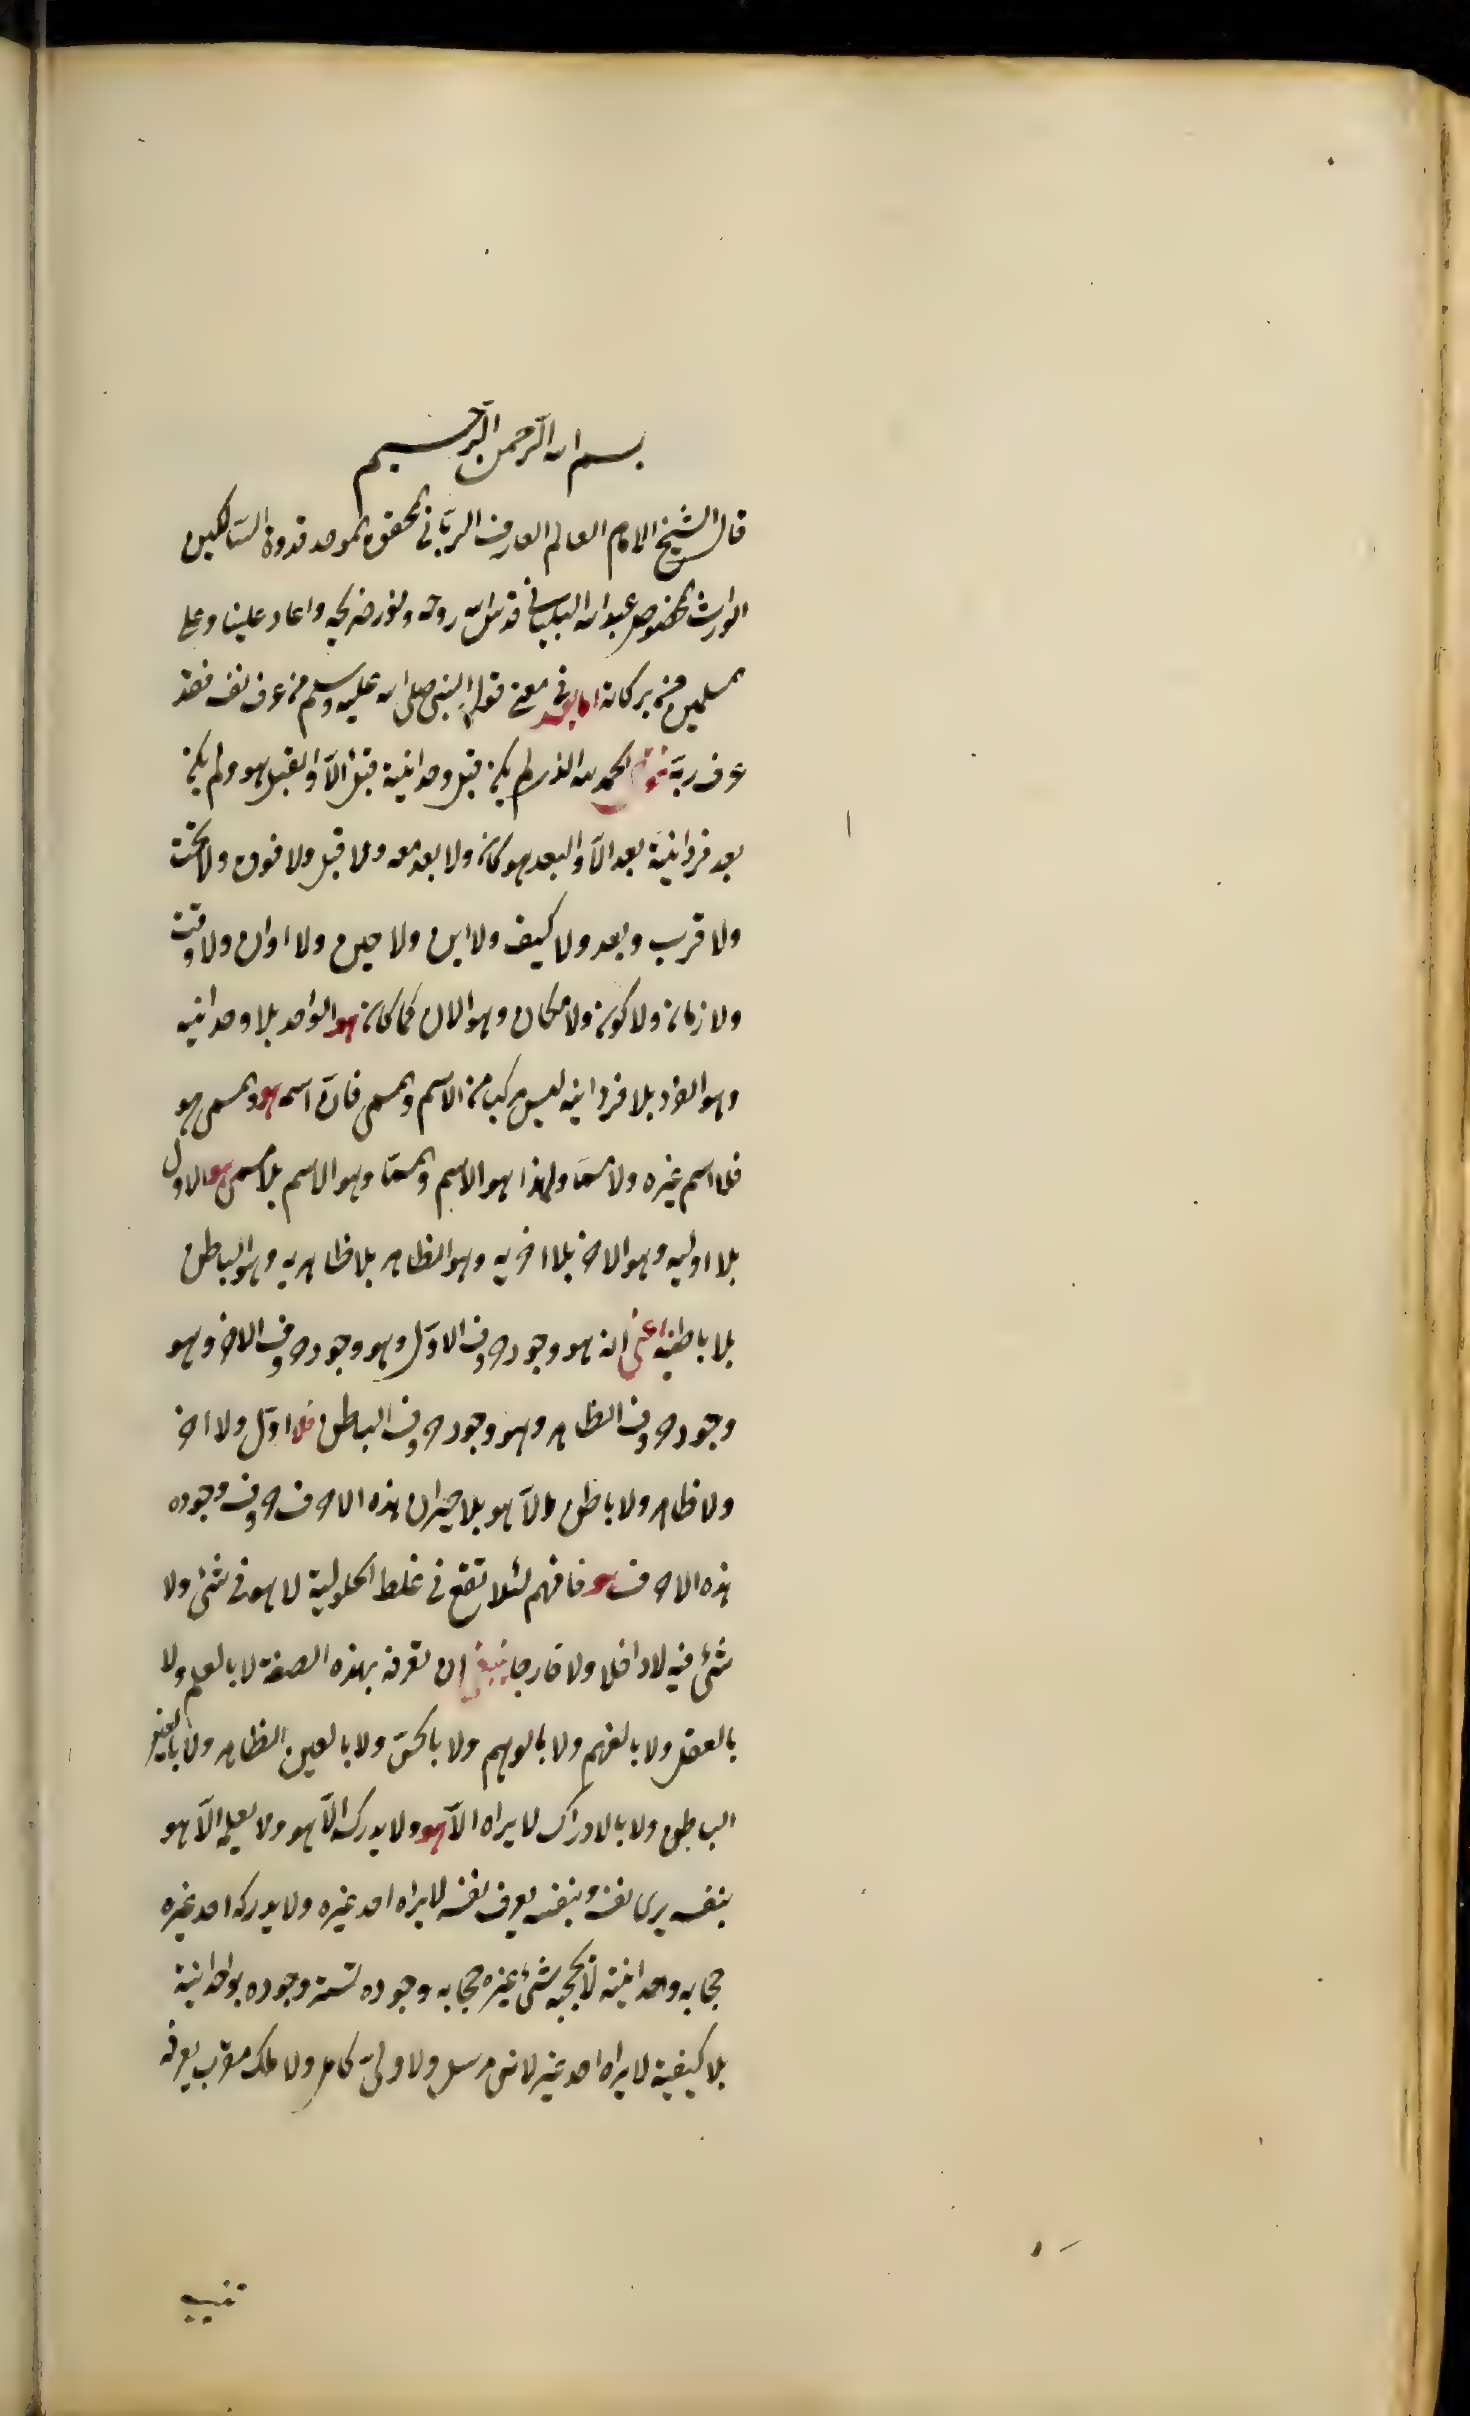 بسم الله الرحمن الرحيم
قال الشيخ الامام العالم العارف الربّاني المحقق الموحد قدوة السّالكين
الوارث المخصوص عبد الله البلياني قدس الله روحه ونور ضريحه واعاد علينا وعلى
المسلمين من بركاته اما بعد في معنى قول النبي صلى الله عليه وسلم من عرف نفسه فقد
عرف ربّه الحمد لله الذي لم يكن قبل وحدانيته قبل الّا والقبل هو ولم يكن
بعد فردانيته بعد الّا والبعد هو كان ولا بعد معه ولا قبل ولا فوق ولا تحت
ولا قرب وبعد ولا كيف ولا اين ولا حين ولا اوان ولا وقت
ولا زمان ولا كون ولا مكان وهو الان كما كان هو الواحد بلا وحدانيه
وهو الفرد بلا فردانيه ليس مركب من الاسم والمسمى فانّ اسمه هو والمسمى هو
فلا اسم غيره ولا مسمّا ولهذا هو الاسم والمسمّا وهو الاسم بلا مسمى هو الاول
بلا اوليه وهو الاخر بلا اخريه وهو الظاهر بلا ظاهريه وهو الباطن
بلا باطنية اعنى انه هو وجود حروف الاوّل وهو وجود حروف الاخر وهو
وجود حروف الظاهر وهو وجود حروف الباطن فلا اوّل ولا اخر
ولا ظاهر ولا باطن الّا هو بلا صيران هذه الاحرف حروف وجوده
هذه الاحرف هو فافهم لئلا تقع في غلط الحلولية لا هو في شئ ولا
شئ فيه لا داخلا ولا خارجا ينبغي ان تعرفه بهذه الصفة لا بالعلم ولا
بالعقل ولا بالفهم ولا بالوهم ولا بالحسّ ولا بالعين الظاهر ولا بالعين
الباطن ولا بالادراك لا يراه الّا هو ولا يدركه الّا هو ولا يعلمه الّا هو
بنفسه يرى نفسه وبنفسه يعرف نفسه لا يراه احد غيره ولا يدركه احد غيره
حجابه وحدانيته لا يحجبه شئ غيره حجابه وجوده تستر وجوده بوحدانيته
بلا كيفية لا يراه احد غيره لا نبى مرسل ولا ولىّ كامل ولا ملك مقرّب يعرفه